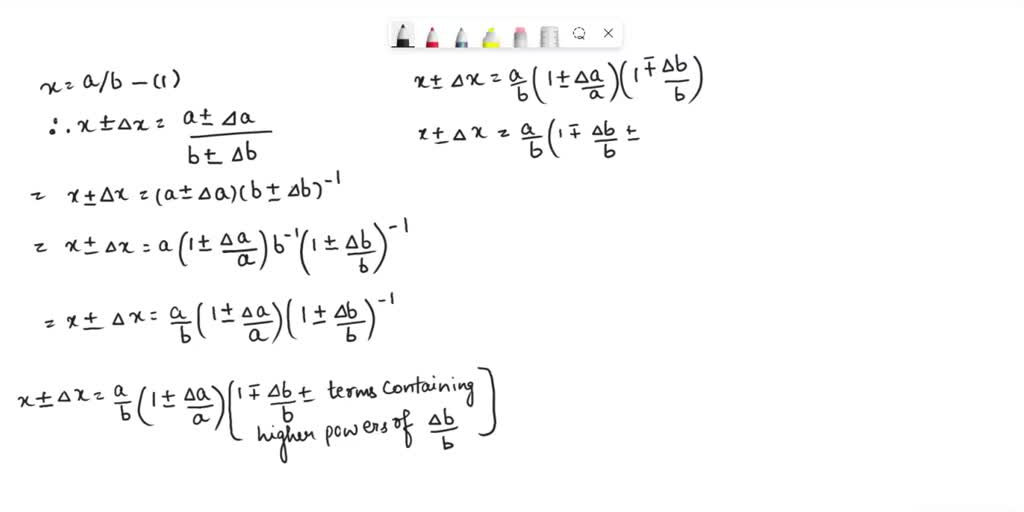 x = a/b – (1)
∴ x ± Δx = (a ± Δa)/(b ± Δb)
= x ± Δx = (a ± Δa)(b ± Δb)⁻¹
= x ± Δx = a(1 ± Δa/a) b⁻¹(1 ± Δb/b)⁻¹
= x ± Δx = a/b (1 ± Δa/a)(1 ± Δb/b)⁻¹
x ± Δx = a/b (1 ± Δa/a)[1 ∓ Δb/b ± terms containing
higher powers of Δb/b]
x ± Δx = a/b (1 ± Δa/a)(1 ∓ Δb/b)
x ± Δx = a/b (1 ∓ Δb/b ±